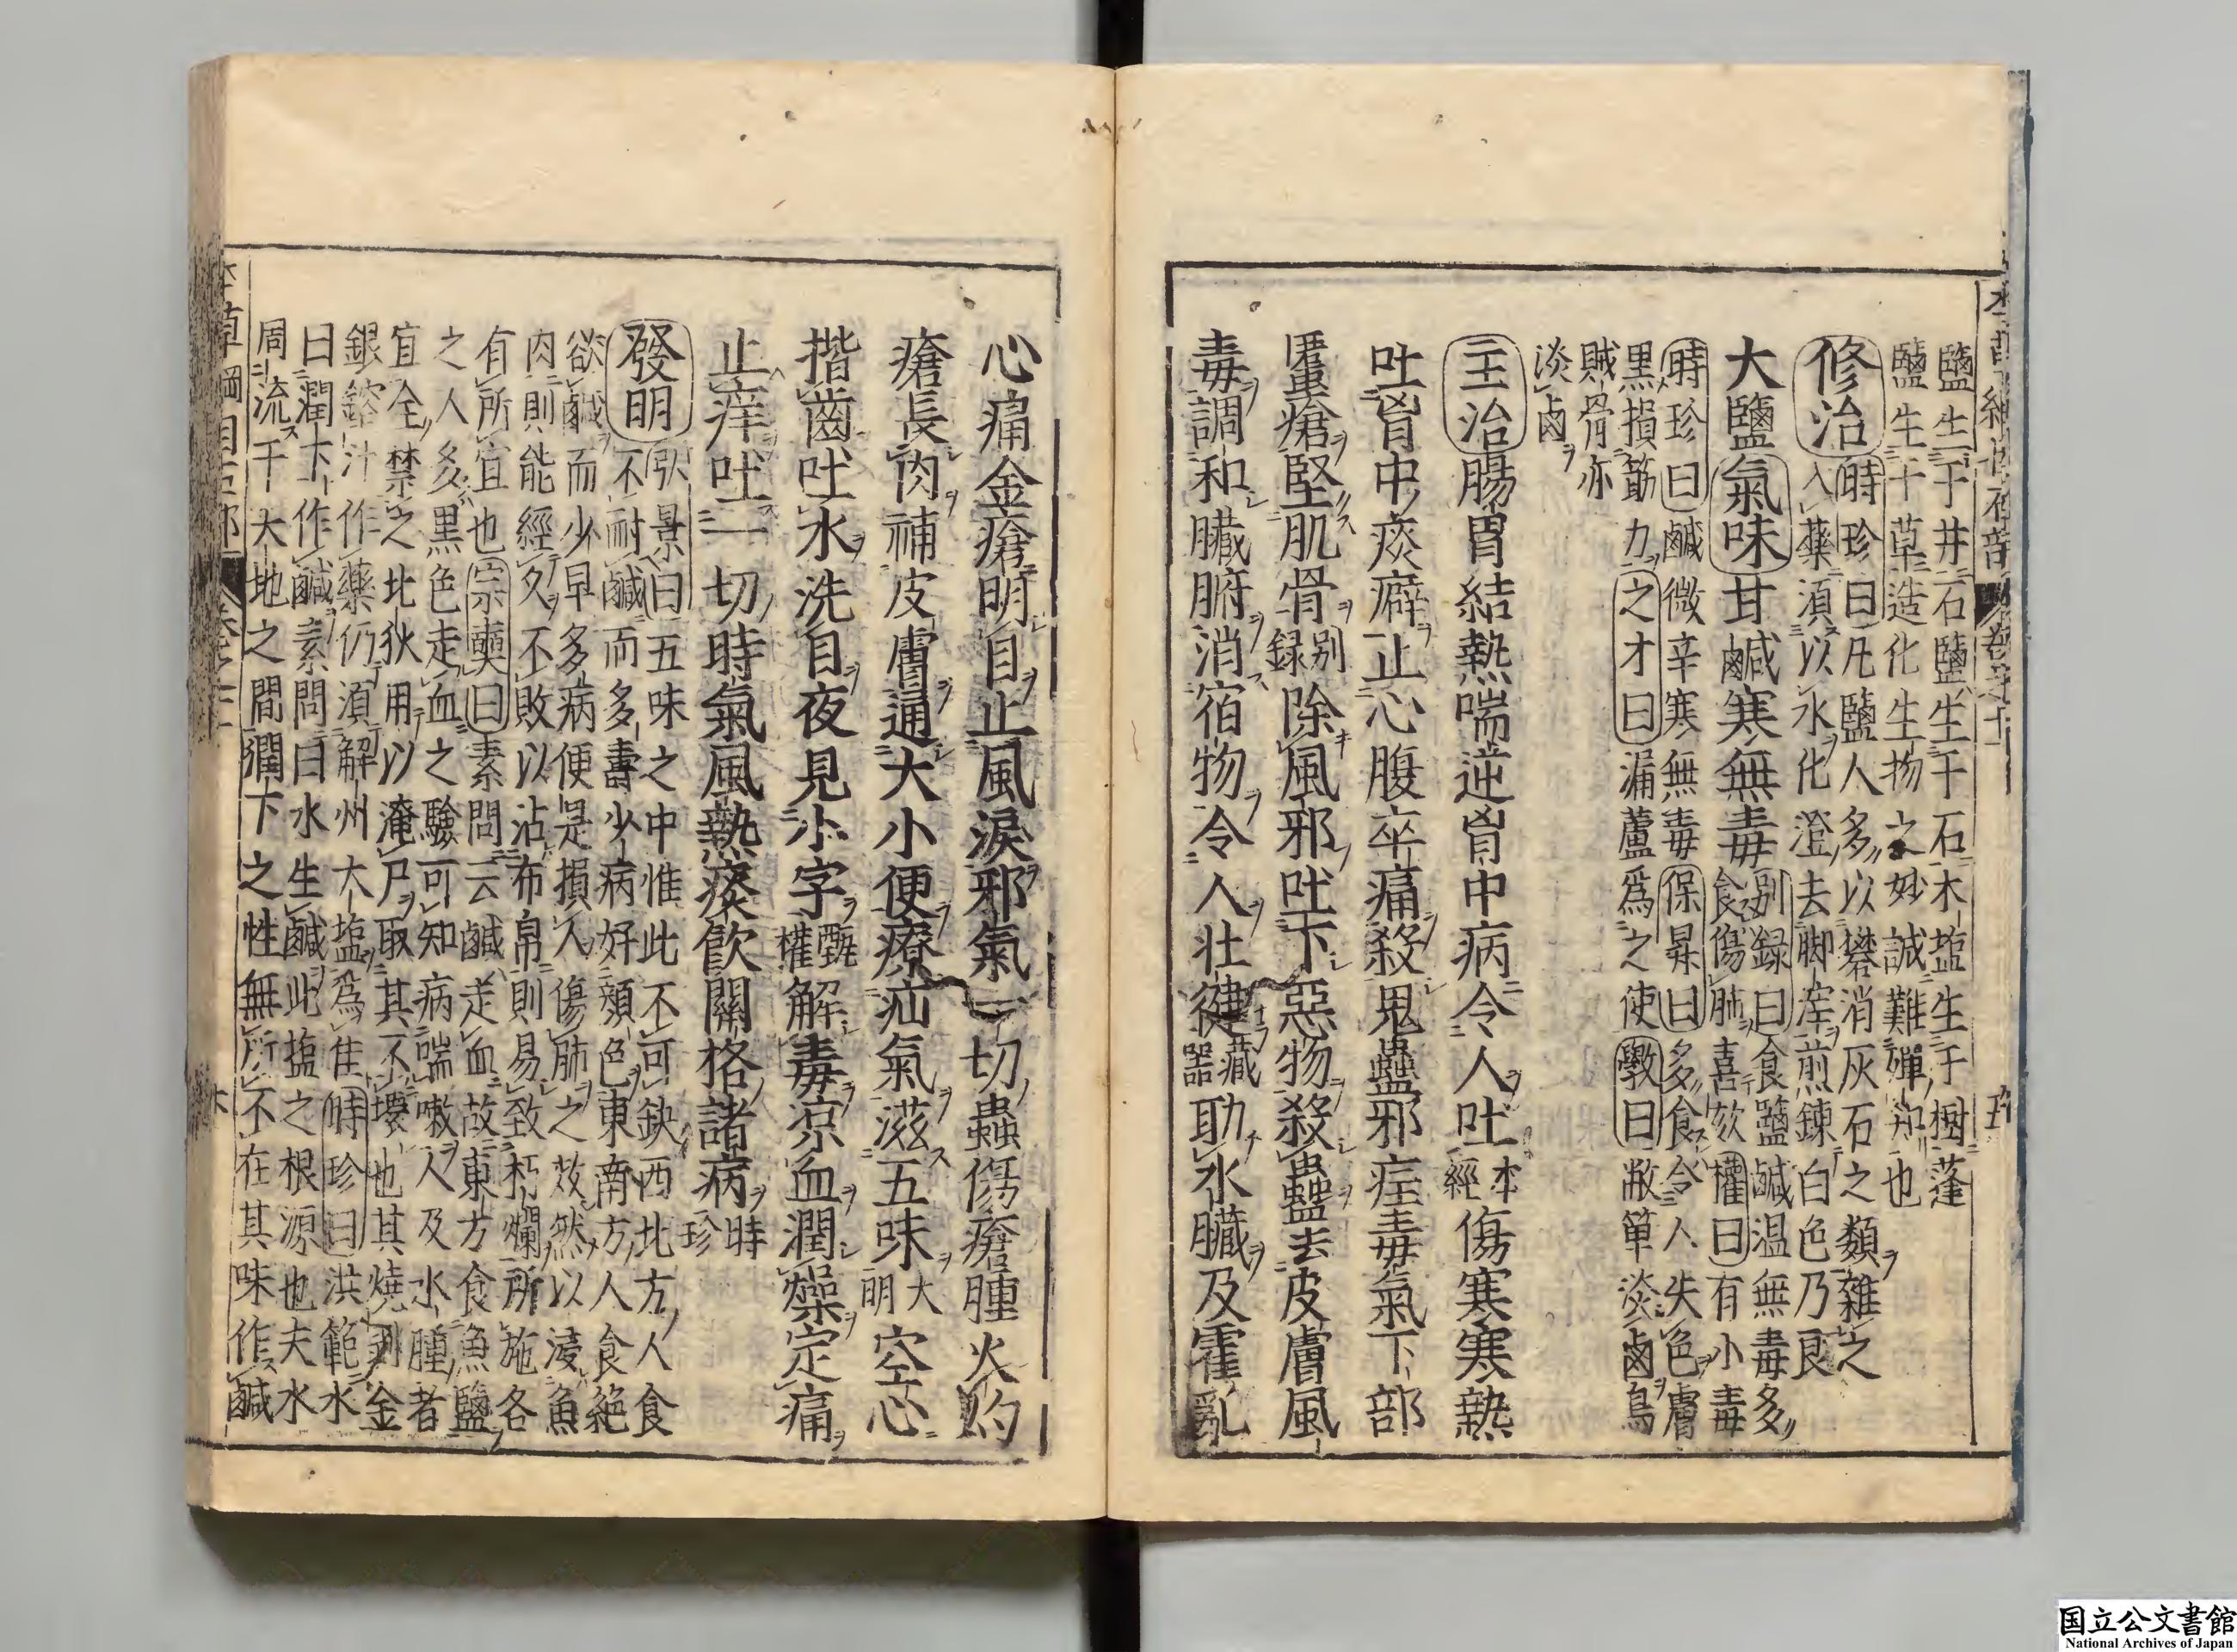 鹽生于井石鹽生于石木塩生于樹蓬
鹽生于草造化生物之妙誠難殫知也
修治時珍曰凡鹽人多以礬消灰石之類雜之
入藥須以水化澄去脚滓煎鍊白色乃良
大鹽氣味甘鹹寒無毒別録曰食鹽鹹温無毒多
食傷肺喜欬權曰有小毒
時珍曰鹹微辛寒無毒保昇曰多食令人失色膚
黒損筋力之才曰漏蘆爲之使斅曰敝箄淡鹵鳥
賊骨亦
淡鹵
主治腸胃結熱喘逆胷中病令人吐本
經傷寒寒熱
吐胷中痰癖止心腹卒痛殺鬼蠱邪疰毒氣下部
𧔦瘡堅肌骨别
録除風邪吐下惡物殺蟲去皮膚風
毒調和臓腑消宿物令人壮健藏
器助水臓及霍亂
心痛金瘡明目止風淚邪氣一切蟲傷瘡腫火灼
瘡長肉補皮膚通大小便療疝氣滋五味大
明空心
揩齒吐水洗目夜見小字甄
權解毒凉血潤燥定痛
止痒吐一切時氣風熱痰飲關格諸病時
珍
發明弘景曰五味之中惟此不可缺西北方人食
不耐鹹而多壽少病好顏色東南方人食絶
欲鹹而少早多病便是損人傷肺之效然以浸魚
肉則能經久不敗以沾布帛則易致朽爛所施各
有所宜也宗奭曰素問云鹹走血故東方食魚鹽
之人多黒色走血之驗可知病喘嗽人及水腫者
宜全禁之北狄用以淹尸取其不壞也其燒剥金
銀鎔汁作藥仍須解州大塩爲佳時珍曰洪範水
曰潤下作鹹素問曰水生鹹此塩之根源也夫水
周流于大地之間潤下之性無所不在其味作鹹
国立公文書館
National Archives of Japan